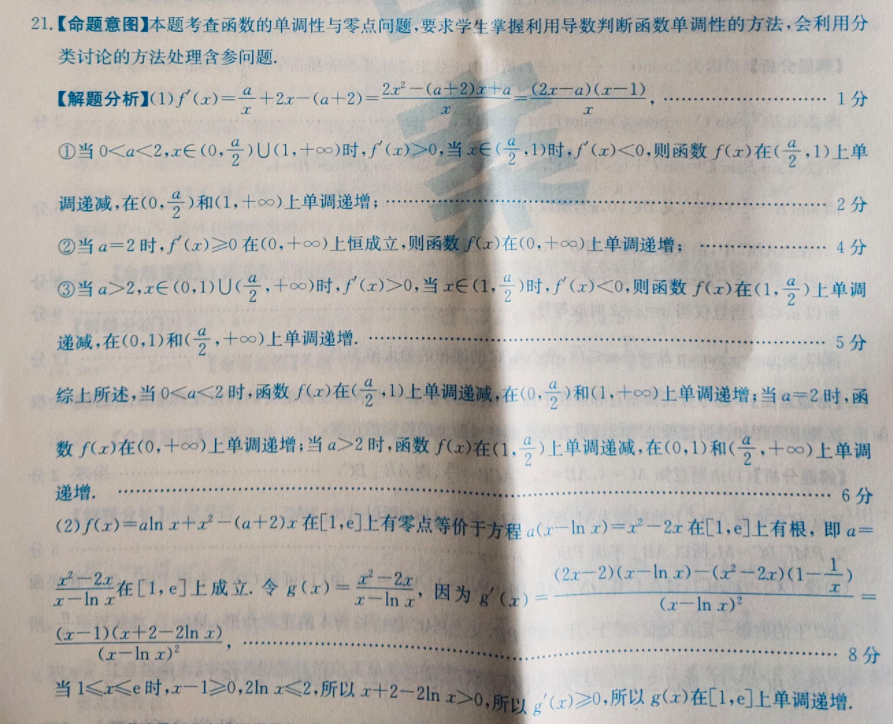 21.【命题意图】本题考查函数的单调性与零点问题,要求学生掌握利用导数判断函数单调性的方法,会利用分
类讨论的方法处理含参问题.
【解题分析】(1)f′(x)=a/x+2x-(a+2)=(2x²-(a+2)x+a)/x=((2x-a)(x-1))/x, …… 1分
①当0<a<2,x∈(0,a/2)∪(1,+∞)时,f′(x)>0,当x∈(a/2,1)时,f′(x)<0,则函数f(x)在(a/2,1)上单
调递减,在(0,a/2)和(1,+∞)上单调递增; …… 2分
②当a=2时,f′(x)≥0在(0,+∞)上恒成立,则函数f(x)在(0,+∞)上单调递增; …… 4分
③当a>2,x∈(0,1)∪(a/2,+∞)时,f′(x)>0,当x∈(1,a/2)时,f′(x)<0,则函数f(x)在(1,a/2)上单调
递减,在(0,1)和(a/2,+∞)上单调递增. …… 5分
综上所述,当0<a<2时,函数f(x)在(a/2,1)上单调递减,在(0,a/2)和(1,+∞)上单调递增;当a=2时,函
数f(x)在(0,+∞)上单调递增;当a>2时,函数f(x)在(1,a/2)上单调递减,在(0,1)和(a/2,+∞)上单调
递增. …… 6分
(2)f(x)=aln x+x²-(a+2)x在[1,e]上有零点等价于方程a(x-ln x)=x²-2x在[1,e]上有根,即a=
(x²-2x)/(x-ln x)在[1,e]上成立.令g(x)=(x²-2x)/(x-ln x),因为g′(x)=((2x-2)(x-ln x)-(x²-2x)(1-1/x))/(x-ln x)²=
((x-1)(x+2-2ln x))/(x-ln x)², …… 8分
当1≤x≤e时,x-1≥0,2ln x≤2,所以x+2-2ln x>0,所以g′(x)≥0,所以g(x)在[1,e]上单调递增.